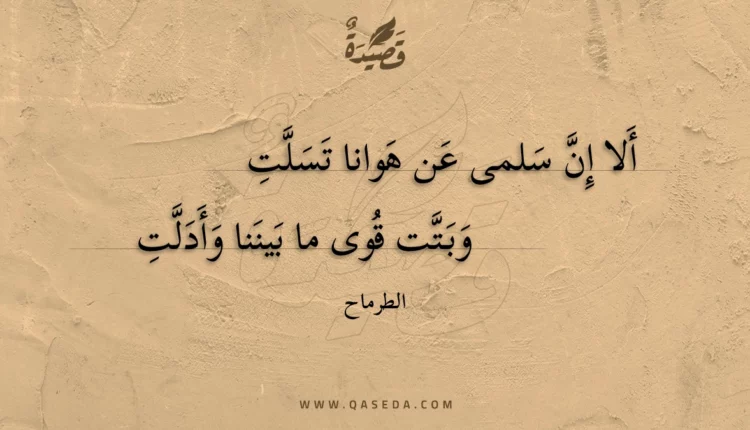 قَصِيدَةٌ
أَلا إِنَّ سَلمى عَن هَوانا تَسَلَّتِ
وَبَتَّت قُوى ما بَينَنا وَأَدَلَّتِ
الطرماح
WWW.QASEDA.COM